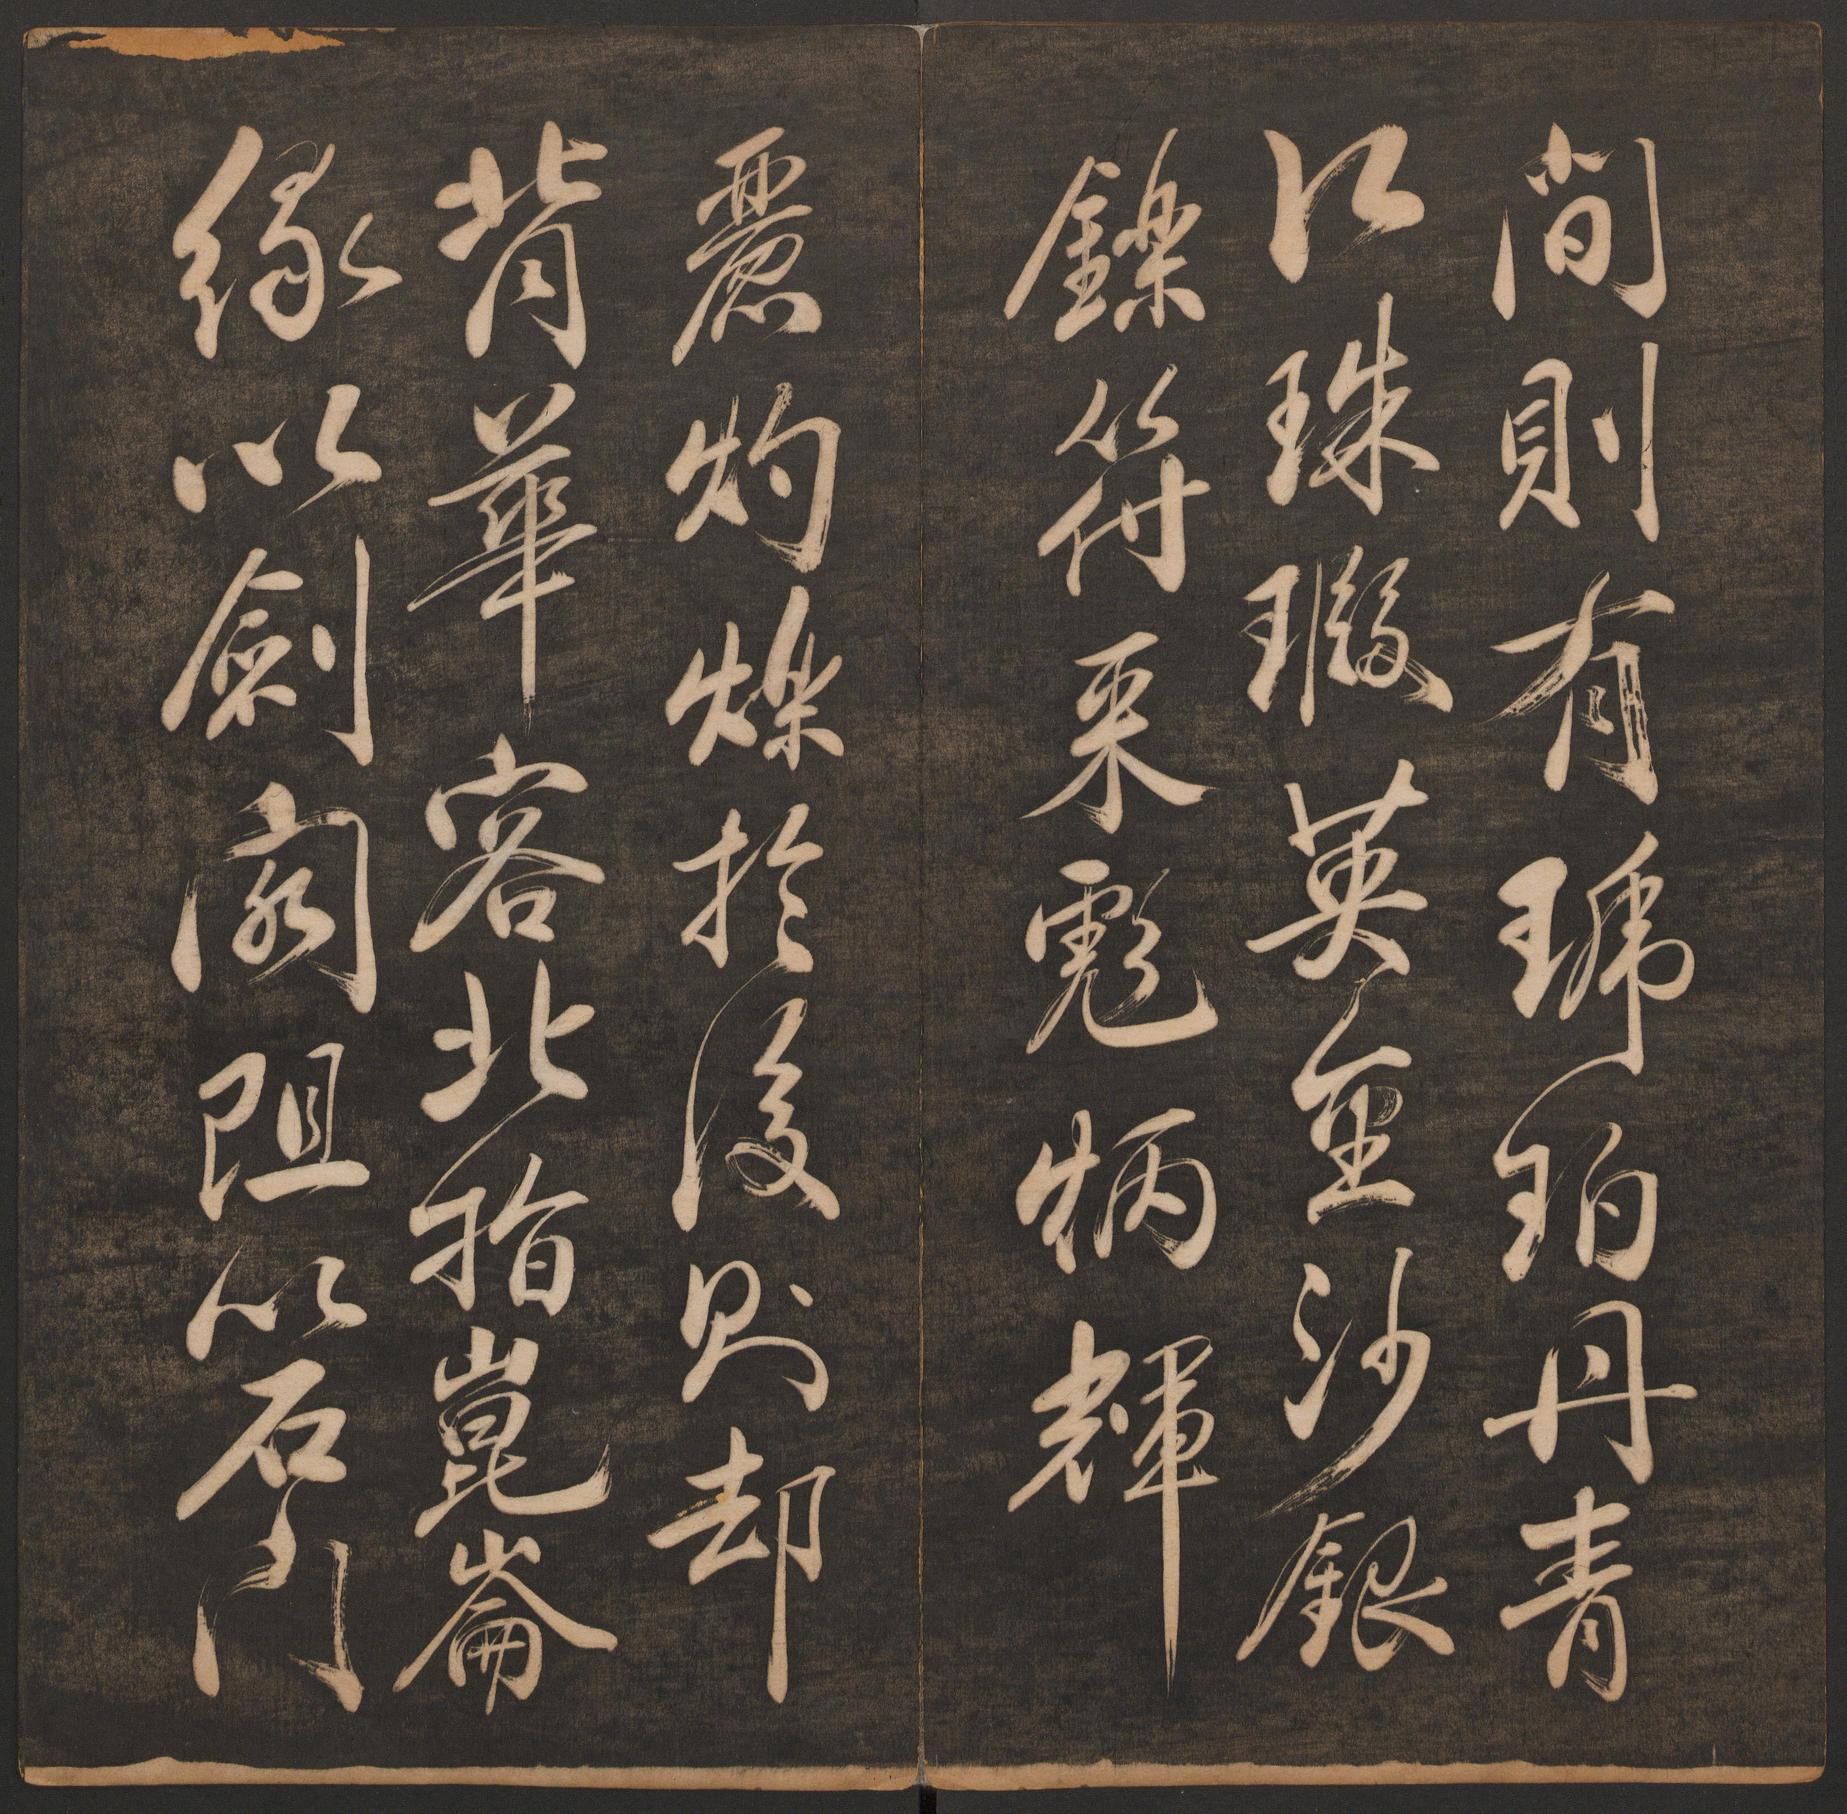 間則有琥珀丹青
江珠瑕英金沙銀
鑠符采彪炳輝
麗灼爍於後則却
背華容北指崑崙
緣以劍閣阻以石門